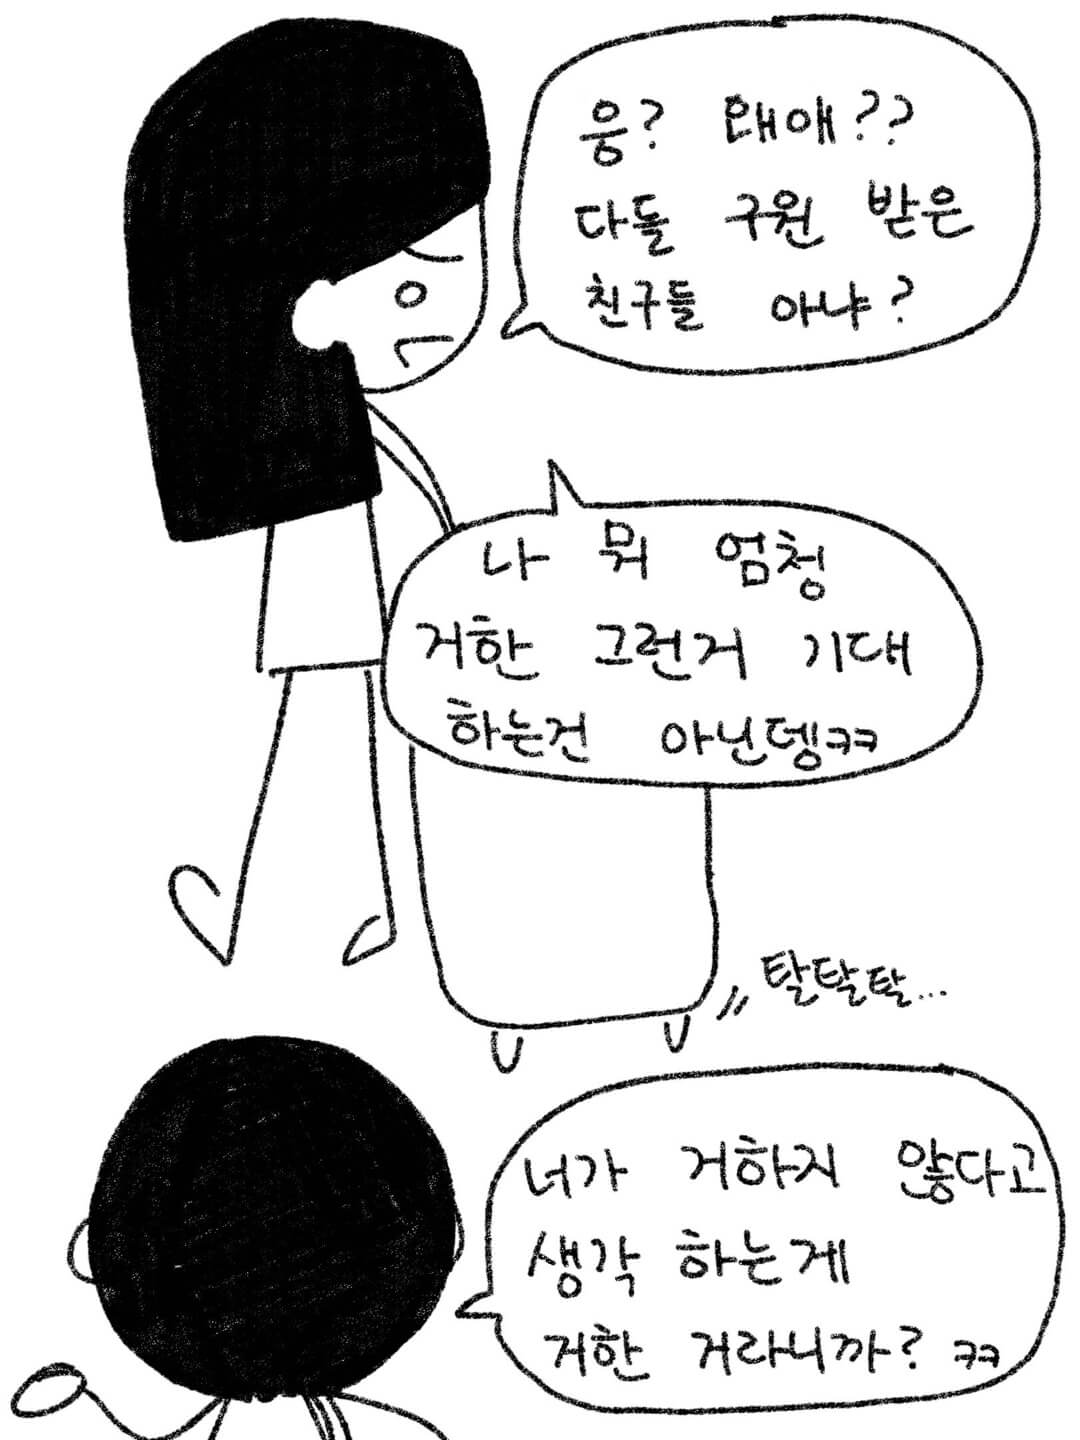 응? 왜애??
다들 구원 받은
친구들 아냐?
나 뭐 엄청
거한 그런거 기대
하는건 아닌뎅ㅋㅋ
탈탈탈...
너가 거하지 않다고
생각 하는게
거한 거라니까? ㅋㅋ